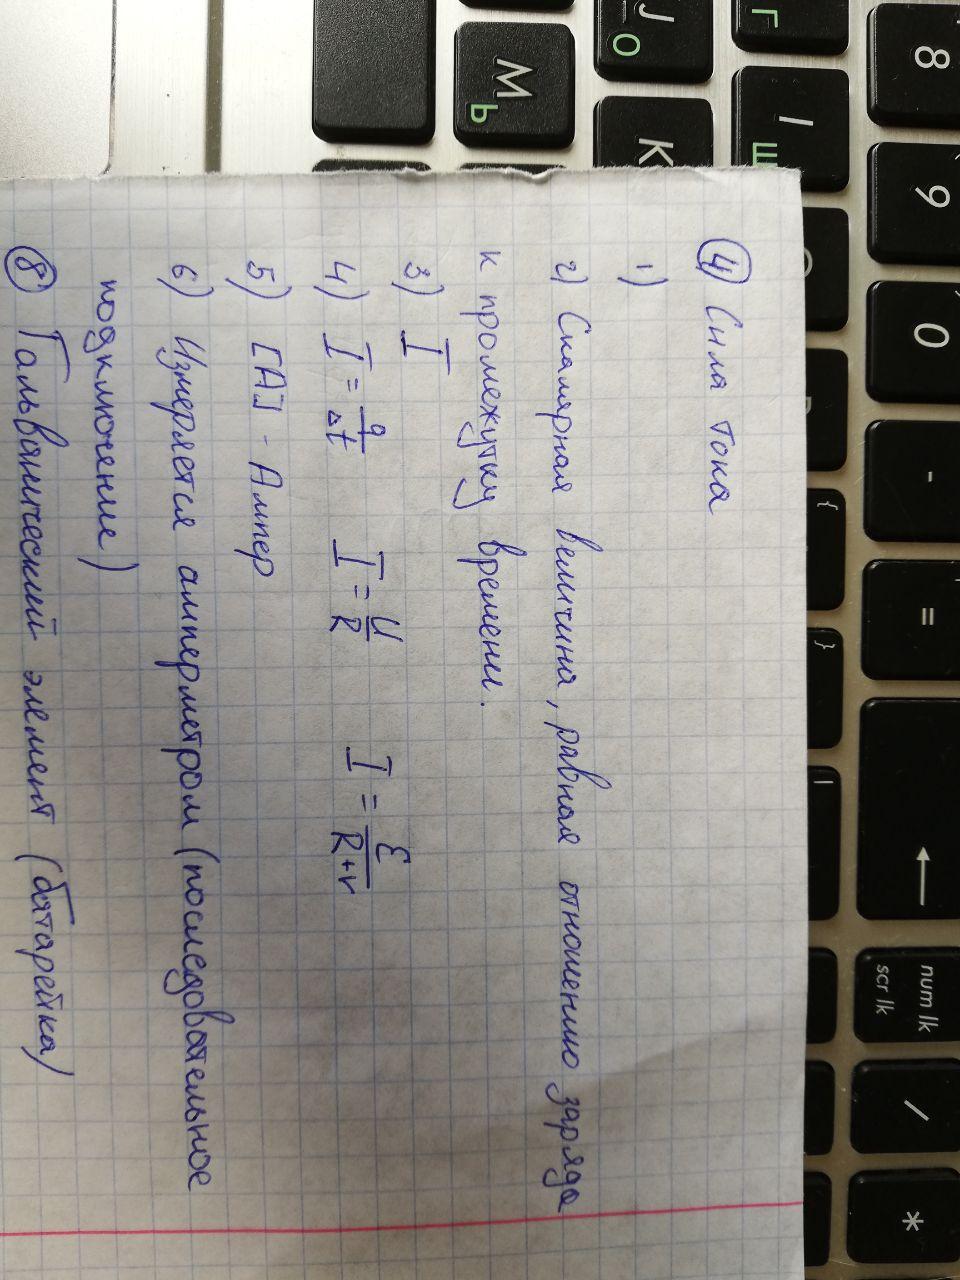 8 9 0 - = ← num lk / *
scr lk
{ } |
Г I Ш
J О K
М Ь
④ Сила тока
1)
2) Скалярная величина, равная отношению заряда
к промежутку времени.
3) I
4) I = q/Δt I = U/R I = ℰ/R+r
5) [A] - Ампер
6) Измеряется амперметром (последовательное
подключение)
⑧ Гальванический элемент (батарейка)